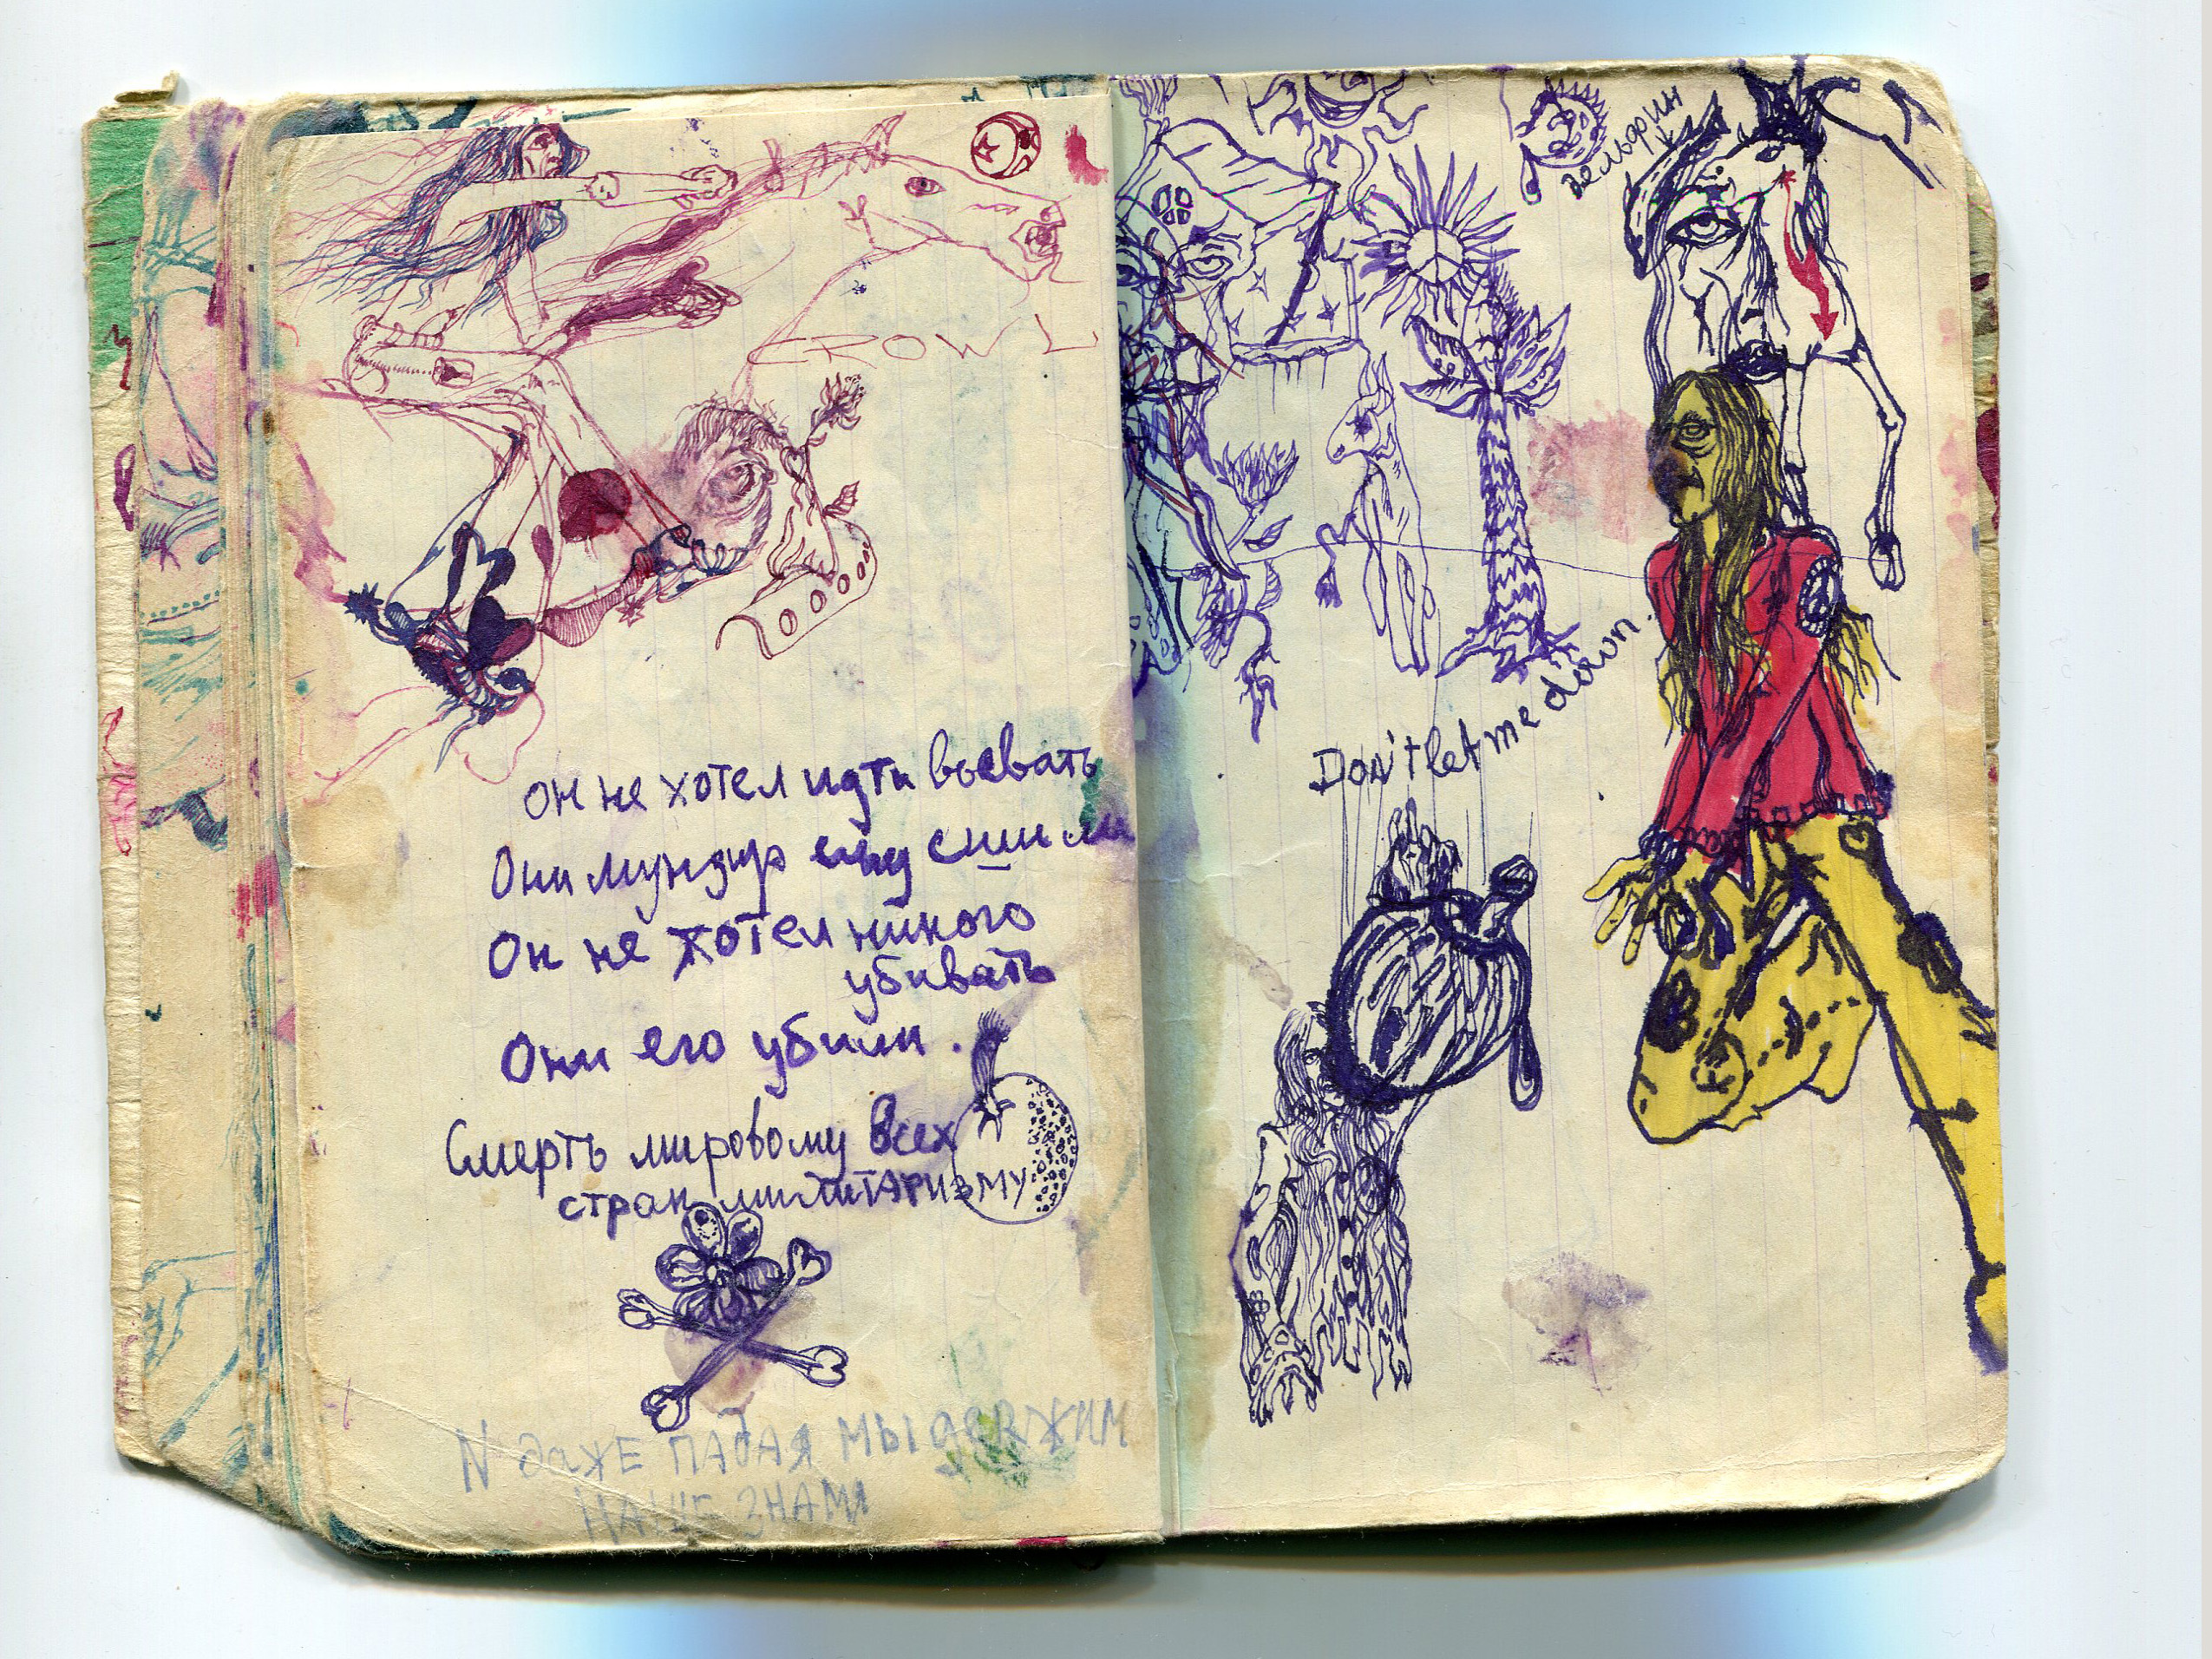 CROWL
он не хотел идти воевать
Они мундир ему сшили
Он не хотел никого
убивать
Они его убили.
Смерть мировому всех
стран милитаризму
N даже падая мы деRжим
НАШЕ ЗНАМЯ
Don't let me down.